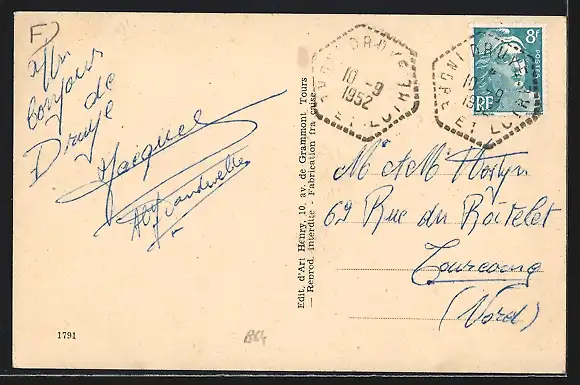 F
un
bonjour
de
Druye
Jacques
Vandewelle
1791
Edit. d'Art Henry, 10. av. de Grammont Tours
— Reprod. interdite - Fabrication française —
DRUYE
10-9
1952
INDRE ET LOIRE
DRUYE
10-9
1952
INDRE ET LOIRE
8f
POSTES
RF
Mr et Mme
69 Rue du Râtelet
Tourcoing
(Nord)